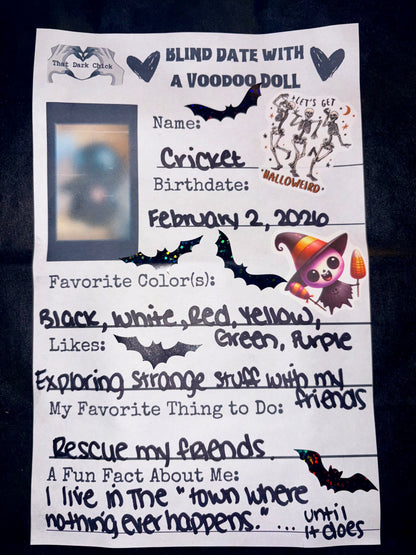 That Dark Chick
BLIND DATE WITH
A VOODOO DOLL
LET'S GET
HALLOWEIRD
Name:
Cricket
Birthdate:
February 2, 2026
Favorite Color(s):
Black, White, Red, Yellow,
Green, Purple
Likes:
Exploring strange stuff with my
friends
My Favorite Thing to Do:
Rescue my friends.
A Fun Fact About Me:
I live in the "town where
nothing ever happens." ... until
it does